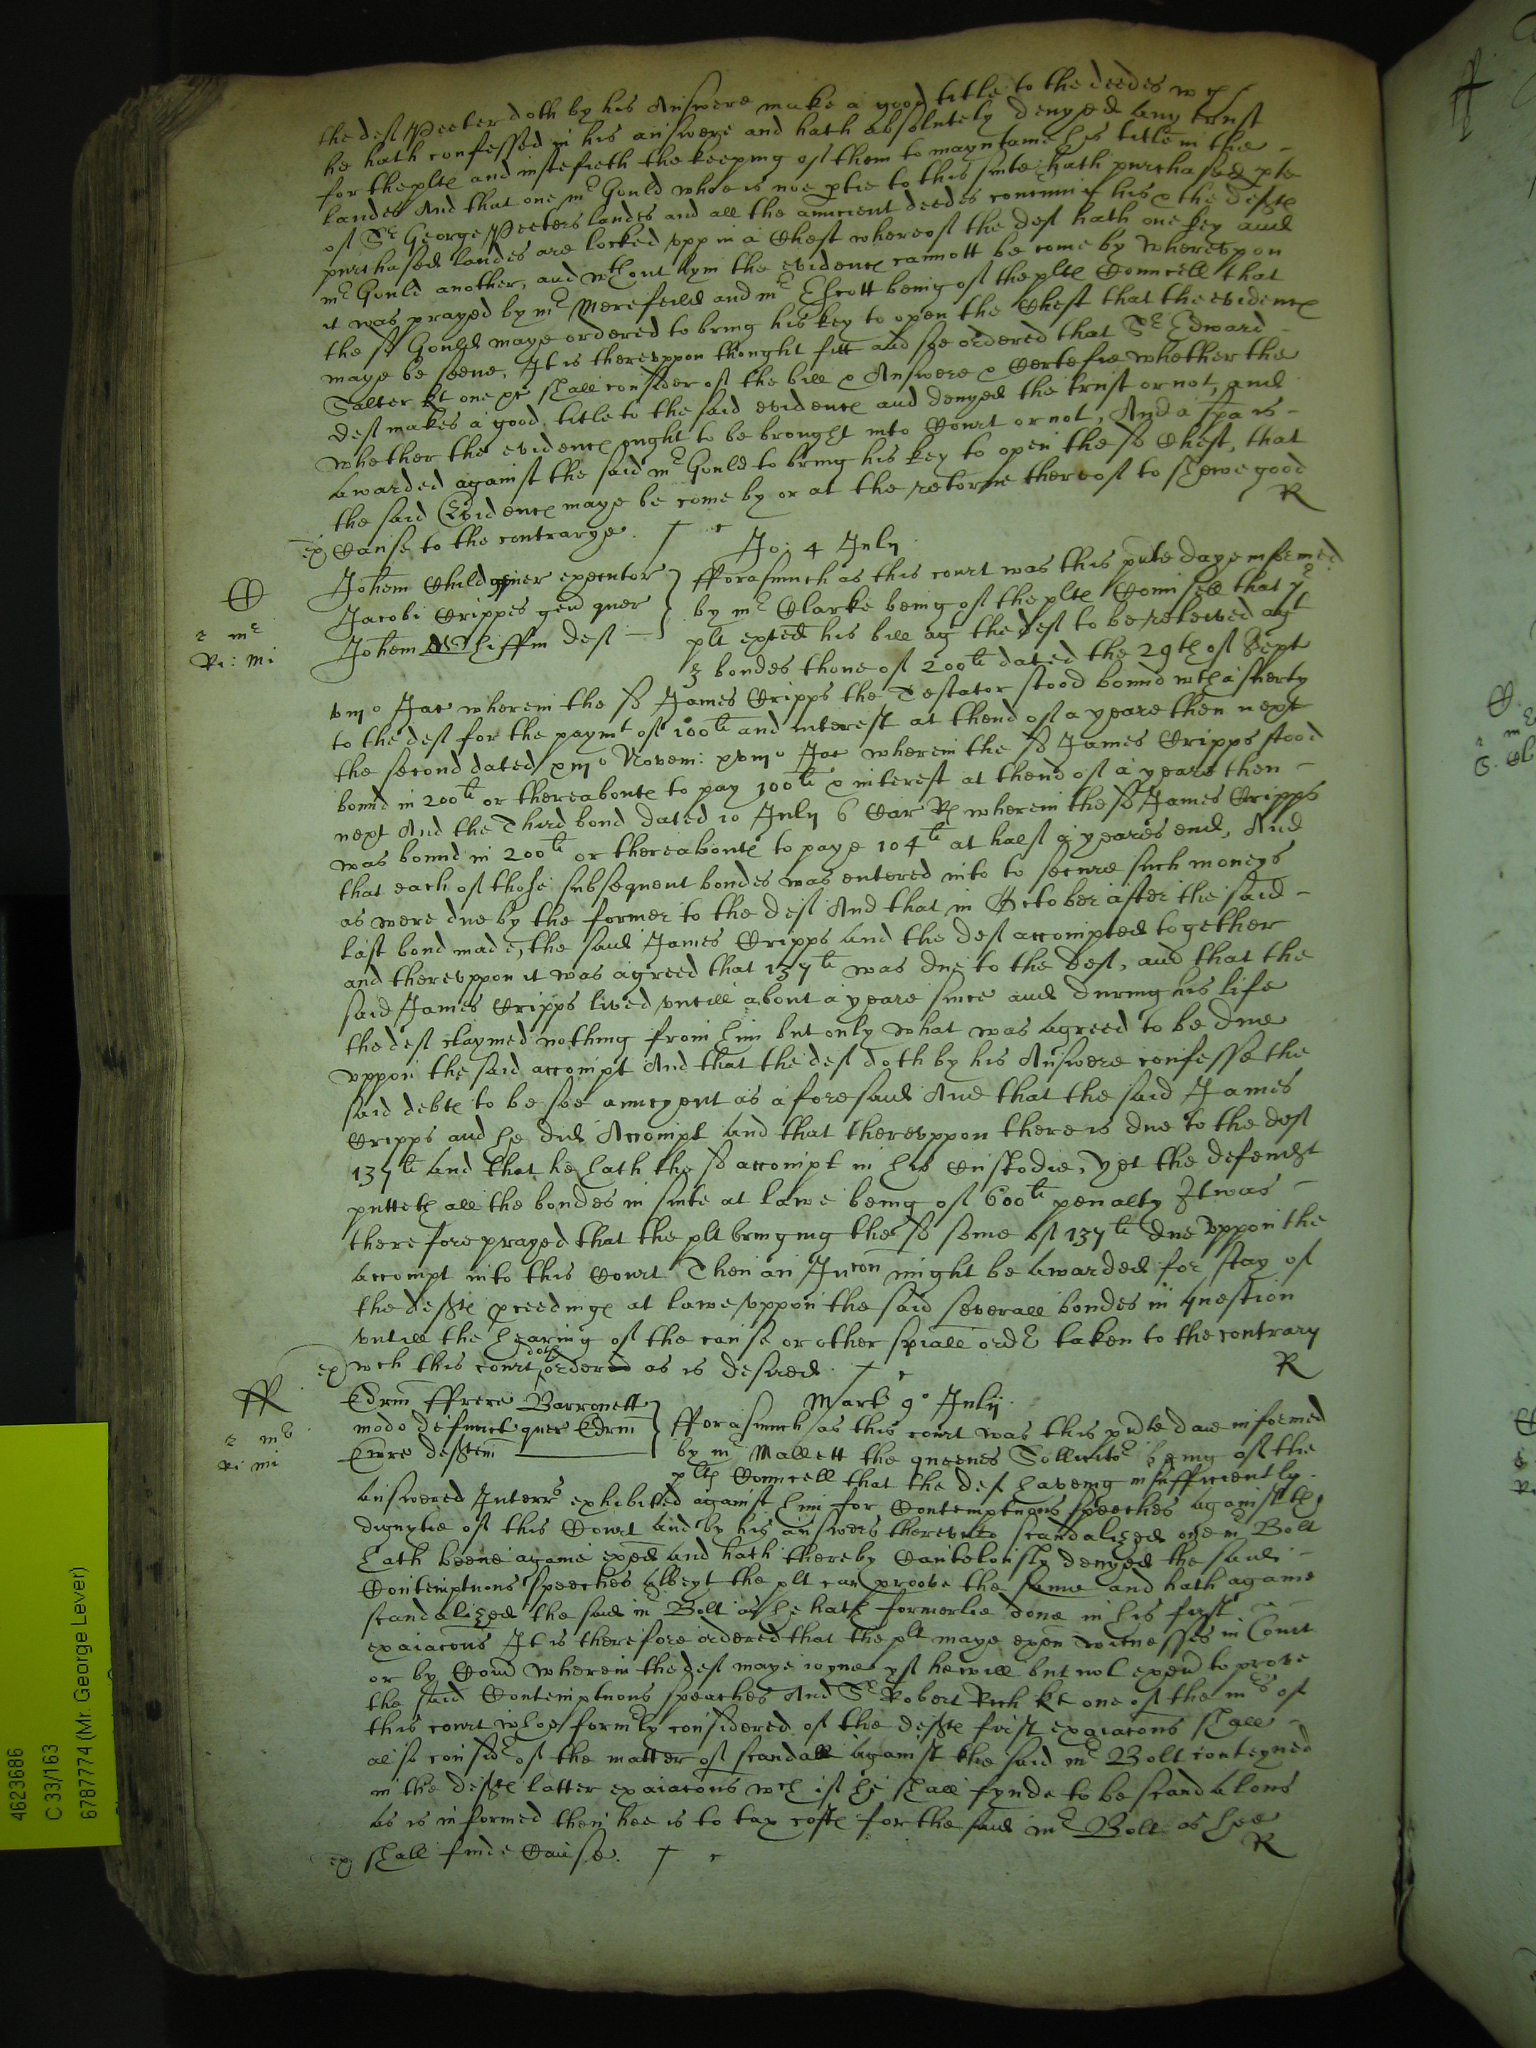 the deft Peeter doth by his Answere make a good title to the deedes wch
he hath confessed in his answere and hath absolutely denyed any trust
for the pltes and instefieth the keeping of them to mayntaine his title in the
landes And that one mr Gould whoe is noe ptie to this suite hath purchased pte
of Sr George Peeters landes and all the auncient deedes concerninge his & the deftes
purchased landes are locked vpp in a Chest whereof the deft hath one key and
mr Gould another, and wthout hym the evidence cannott be come by Wherevpon
it was prayed by mr Merefeild and mr Escott being of the pltes Councell that
the sd Gould maye ordered to bring his key to open the Chest that the evidence
maye be seene, It is therevppon thought fitt and soe ordered that Sr Edward
Salter kt one &c shall consider of the bill & Answere & Certefie whether the
deft makes a good title to the said evidence and denyed the trust or not, and
whether the evidence ought to be brought into Court or not, And a spa is
awarded against the said mr Gould to bring his key to open the sd Chest, that
the said Evidence maye be come by or at the retorne thereof to shewe good
ex Cause to the contrarye. R
Jo: 4 July
Johem Child gener executor
Jacobi Cripps gen quer
Johem Chiffin deft
r mr
Ri: mi
fforasmuch as this court was this pnte daye informed
by mr Clarke being of the pltes Councell that ye
plt exted his bill agt the deft to be releived agt
3 bondes thone of 200li dated the 29th of Sept
Jac wherein the sd James Cripps the Testator stood bound wth a suerty
to the deft for the paymt of 100li and interest at thend of a yeare then next
the second dated Novem: Jac wherein the sd James Cripps stood
bound in 200li or thereaboute to pay 100li & interest at thend of a yeare then
next And the Third bond dated 10 July 6 Car Rs wherein the sd James Cripps
was bound in 200li or thereaboute to paye 104li at half a yeares end, And
that each of those subsequent bondes was entered into to secure such moneys
as were due by the former to the deft And that in October after the said
last bond made, the said James Cripps and the deft accompted together
and therevppon it was agreed that 137li was due to the deft, and that the
said James Cripps lived vntill about a yeare since and during his life
the deft claymed nothing from him but only what was agreed to be due
vppon the said accompt And that the deft doth by his Answere confesse the
said debte to be soe as aforesaid And that the said James
Cripps and he did Accompt and that therevppon there is due to the deft
137li and that he hath the sd accompt in his Custodie, yet the defendt
putteth all the bondes in suite at lawe being of 600li penalty It was
therefore prayed that the plt bringing the sd some of 137li due vppon the
Accompt into this Court Then an Iniuncon might be awarded for stay of
the deftes pceedinge at lawe vppon the said severall bondes in question
vntill the hearing of the cause or other spiall ordr taken to the contrary
ex wch this court doth ordered as is desired. R
ff
r mr
Ri mi
Edrm ffrere Barronett
modo defunct quer Edrm
deftem
Mart 9o July
fforasmuch as this court was this pnte daie informed
by mr Mallett the queenes Sollicitor being of the
pltes Councell that the deft haveing insufficiently
answered Interrs exhibited against him for Contemptuous speeches against the
dignytie of this Court And by his answers therevnto scandalized one mr Bolt
hath beene againe exed and hath thereby Cautelously denyed the said
Contemptuous speeches Albeyt the plt can proove the same and hath againe
scandalized the said mr Bolt as he hath formerlie done in his first
exaiacons It is therefore ordered that the plt maye exen witnesses in Court
or by Coma wherein the deft maye ioyne yf he will but not exen to prove
the said Contemptuous speaches And Sr Robert Rich kt one of the mrs of
this court whoe formly considered of the deftes first exaiacons shall
also considr of the matter of scandall against the said mr Bolt conteyned
in the deftes latter exaiacons wch if he shall fynde to be scandalous
as is informed then hee is to tax coste for the said mr Bolt as hee
ex shall finde Cause. R
4623686
C 33/163
6787774 (Mr. George Lever)